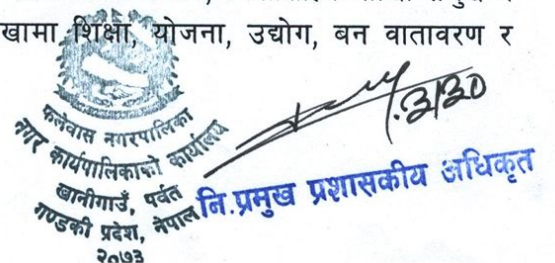 खामा शिक्षा, योजना, उद्योग, बन वातावरण र
फलेवास नगरपालिका
नगर कार्यपालिकाको कार्यालय
खानीगाउँ, पर्वत
गण्डकी प्रदेश, नेपाल
२०७३
नि.प्रमुख प्रशासकीय अधिकृत